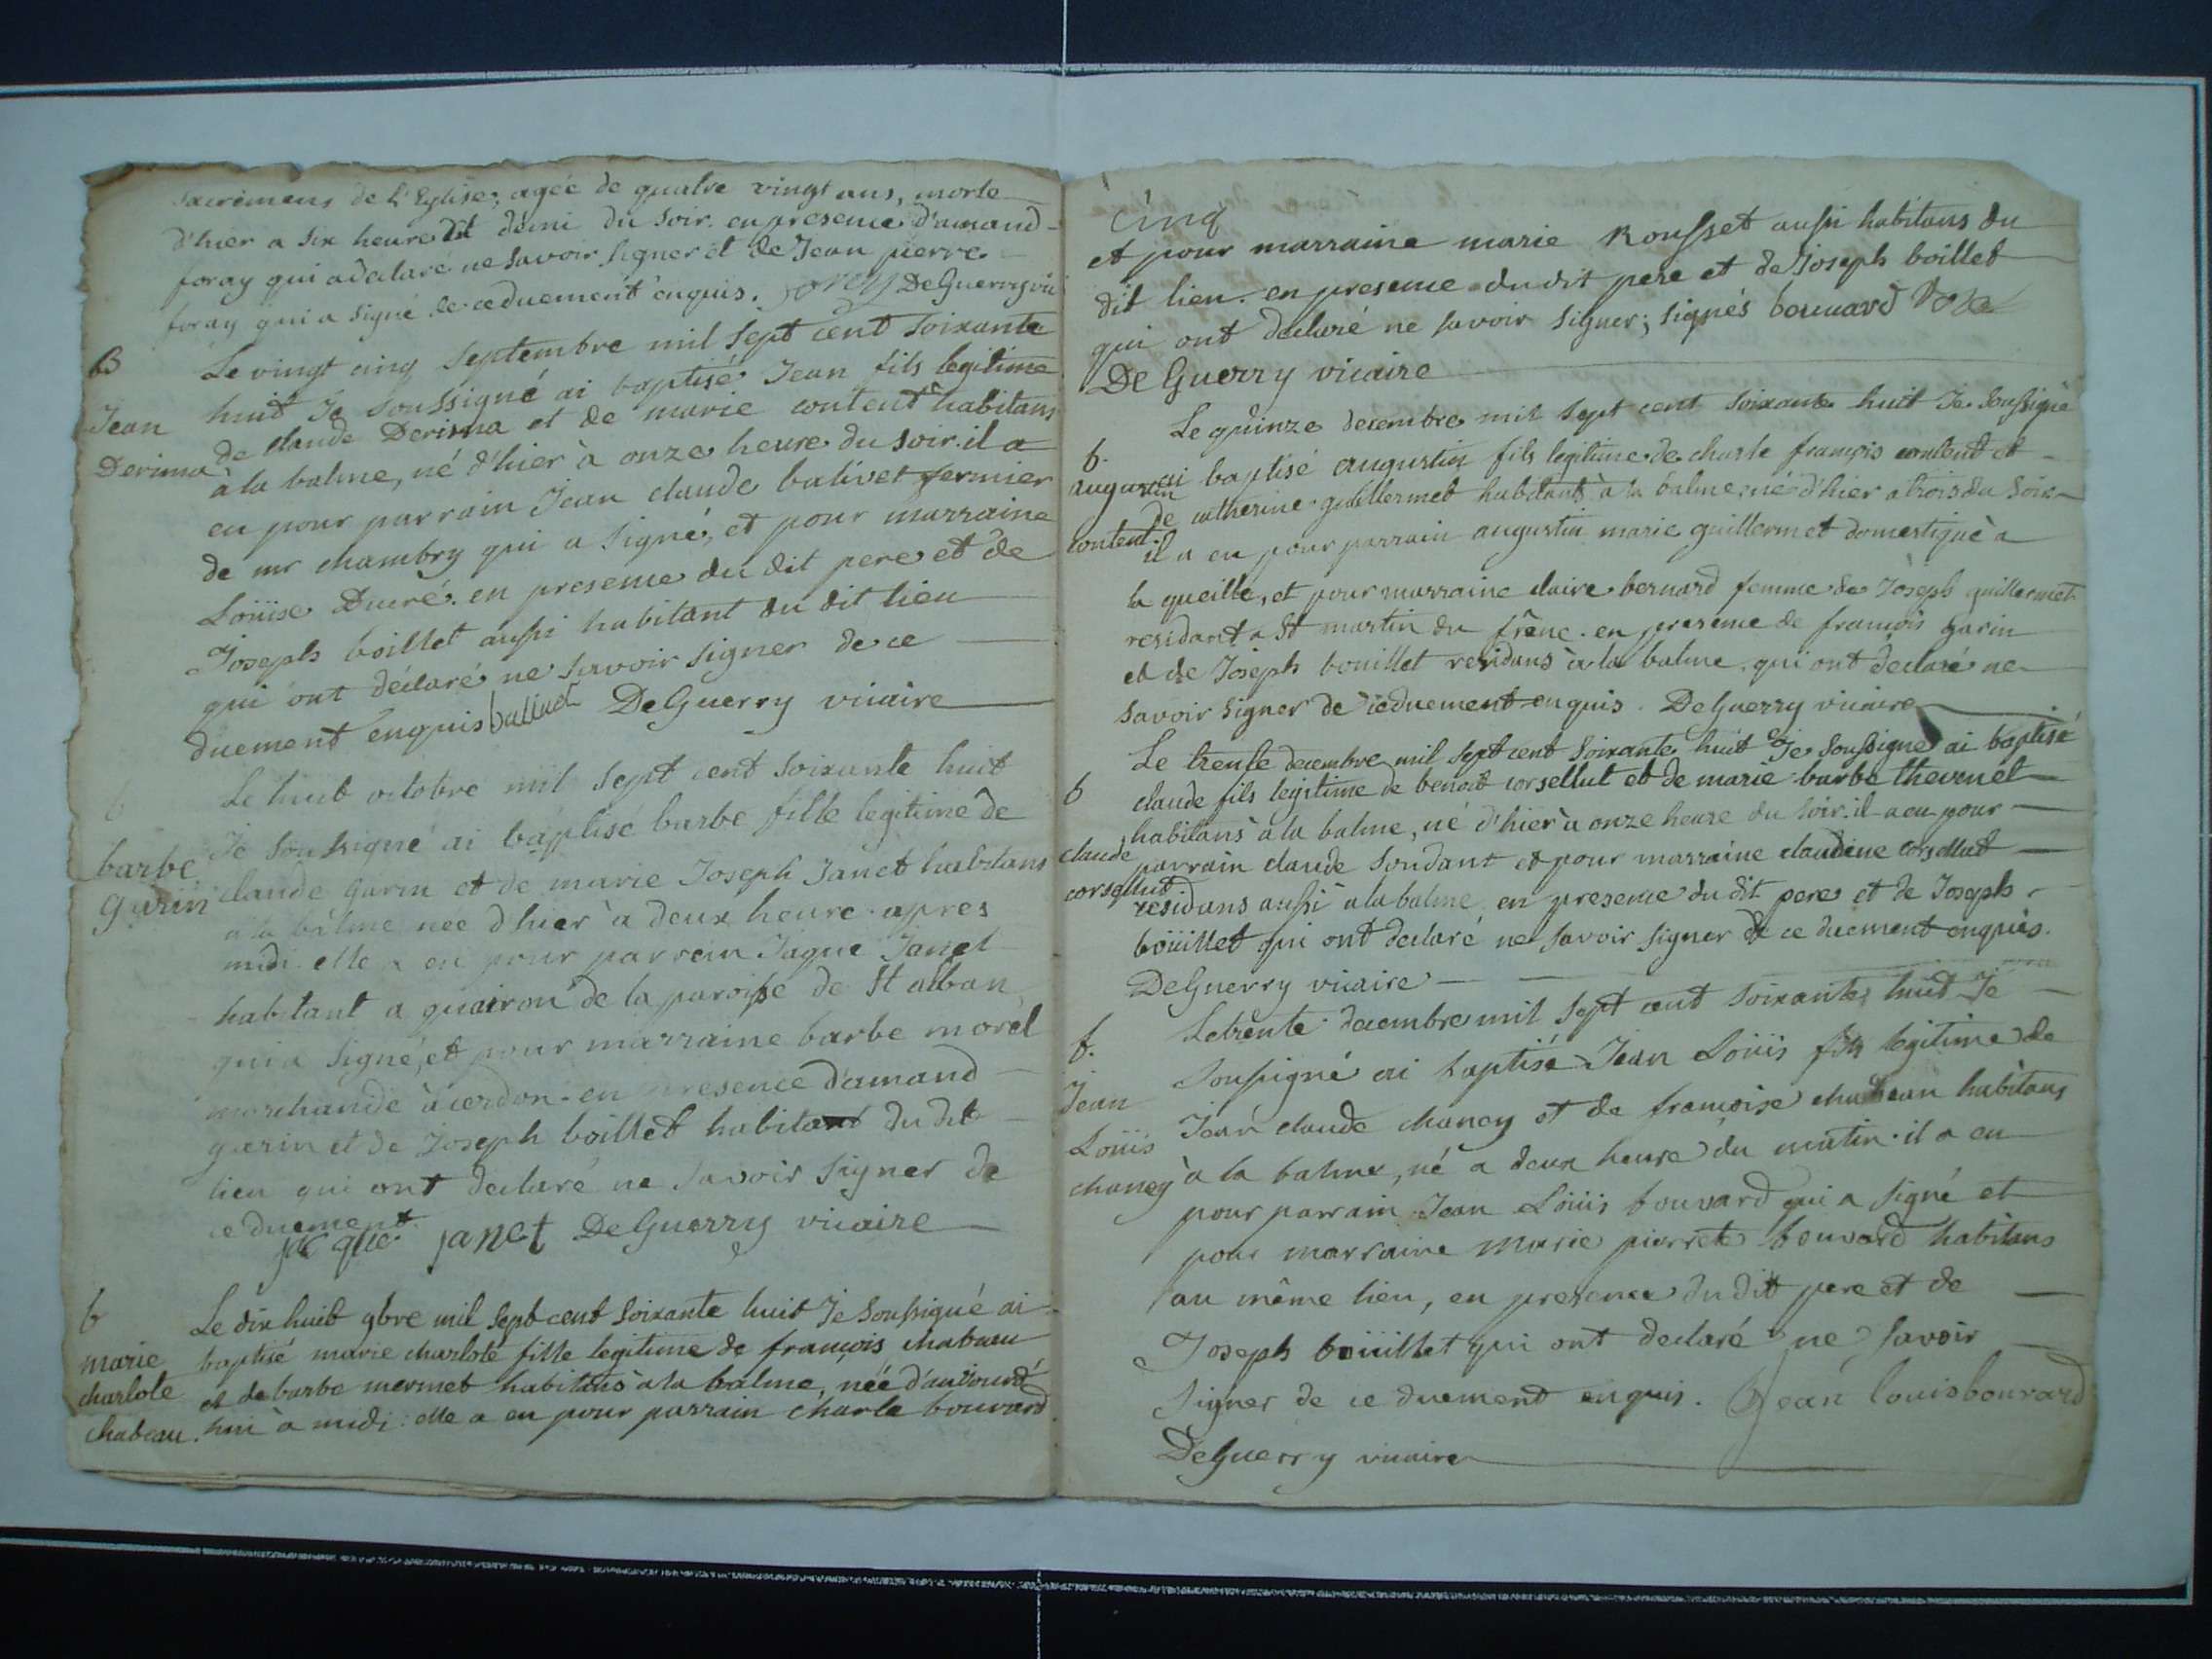 Sacremens de l'Eglise, agée de quatre vingt ans, morte
d'hier a six heure et demi du soir. en presence d'amand
foray qui a declaré ne savoir signer et de Jean pierre
foray qui a signé de ce duement enquis. foray DeGuerry vic
B
Jean
Derima
Le vingt cinq septembre mil sept cent soixante
huit Je soussigné ai baptisé Jean fils legitime
de claude Derima et de marie content habitans
à la balme, né d'hier à onze heure du soir. il a
eu pour parrain Jean claude balivet fermier
de mr chambry qui a signé, et pour marraine
Loüise Ducré. en presence du dit pere et de
Joseph boillet aussi habitant du dit lieu
qui ont déclaré ne savoir signer de ce
duement enquis balivet DeGuerry vicaire
b
barbe
garin
Le huit octobre mil sept cent soixante huit
Je soussigné ai baptisé barbe fille legitime de
claude garin et de marie Joseph Janet habitans
a la balme née d'hier à deux heure apres
midi. elle a eu pour parrain Jaque Janet
habitant a quairon de la paroisse de St alban
qui a signé, et pour marraine barbe morel
marchande à cerdon. en presence d'amand
garin et de Joseph boillet habitant du dit
lieu qui ont declaré ne savoir signer de
ce duement.
jacque janet DeGuerry vicaire
b
marie
charlote
chabeau.
Le dix huit 9bre mil sept cent soixante huit Je soussigné ai
baptisé marie charlote fille legitime de françois chabeau
et de barbe mermet habitans à la balme, née d'aujourd'
hui à midi. elle a eu pour parrain charle bouvard
cinq
et pour marraine marie Rousset aussi habitans du
dit lieu. en presence du dit pere et de Joseph boillet
qui ont declaré ne savoir signer; signés bouvard
De Guerry vicaire
b.
augustin
content.
Le quinze decembre mil sept cent soixante huit Je soussigné
ai baptisé augustin fils legitime de charle françois content et
de catherine guillermet habitants à la balme, né d'hier a trois du soir
il a eu pour parrain augustin marie guillermet domestique à
la queille, et pour marraine claire bernard femme de Joseph guillermet
residant a St martin du frêne. en presence de françois garin
et de Joseph bouillet residans à la balme. qui ont déclaré ne
savoir signer de ce duement enquis. DeGuerry vicaire
b
claude
corsellut.
Le trente decembre mil sept cent soixante huit Je soussigné ai baptisé
claude fils legitime de benoit corsellut et de marie barbe thevenet
habitans à la balme, né d'hier à onze heure du soir. il a eu pour
parrain claude soudant et pour marraine claudine corsellut
residans aussi à la balme en presence du dit pere et de Joseph
boüillet qui ont declaré ne savoir signer de ce duement enquis.
DeGuerry vicaire
b.
Jean
Loüis
chaney
Le trente decembre mil sept cent soixante huit Je
soussigné ai baptisé Jean Loüis fils legitime de
Jean claude chaney et de françoise chabeau habitans
à la balme, né a deux heure du matin. il a eu
pour parrain Jean Loüis bouvard qui a signé et
pour marraine Marie pierrete bouvard habitans
au même lieu, en presence du dit pere et de
Joseph boüillet qui ont declaré ne savoir
signer de ce duement enquis. Jean louis bouvard
DeGuerry vicaire